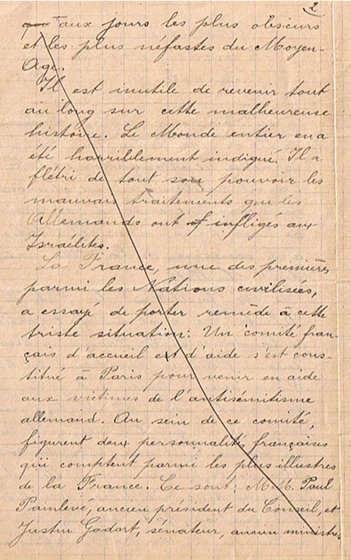 2
que aux jours les plus obscurs
et les plus néfastes du Moyen-
Age.
Il est inutile de revenir tout
au long sur cette malheureuse
histoire. Le Monde entier en a
été horriblement indigué. Il a
flétri de tout son pouvoir les
mauvais traitements que les
Allemands ont infligés aux
Israélites.
La France, une des premières
parmi les Nations civilisées,
a essayé de porter remède à cette
triste situation. Un comité fran-
çais d'accueil et d'aide s'est cons-
titué à Paris pour venir en aide
aux victimes de l'antisémitisme
allemand. Au sein de ce comité,
figurent deux personnalités françaises
qui comptent parmi les plus illustres
de la France. Ce sont: M.M. Paul
Painlevé, ancien président du Conseil, et
Justin Godart, sénateur, ancien ministre,